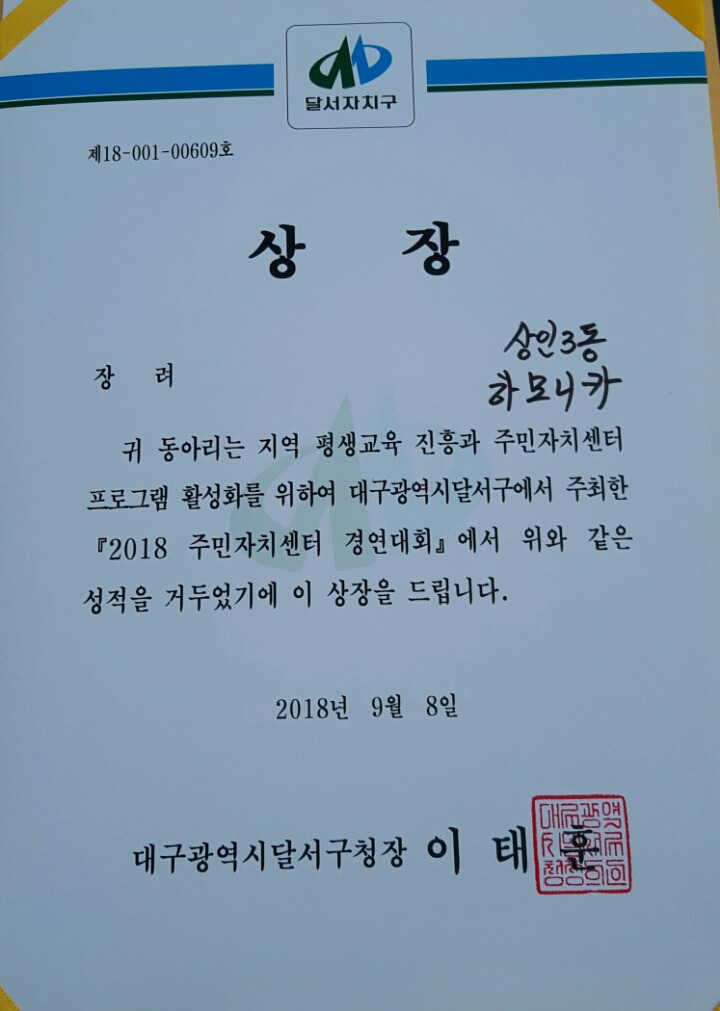 달서자치구
제18-001-00609호
상 장
상인3동
장 려
하모니카
귀 동아리는 지역 평생교육 진흥과 주민자치센터
프로그램 활성화를 위하여 대구광역시달서구에서 주최한
『2018 주민자치센터 경연대회』에서 위와 같은
성적을 거두었기에 이 상장을 드립니다.
2018년 9월 8일
대구광역시달서구청장 이 태 훈